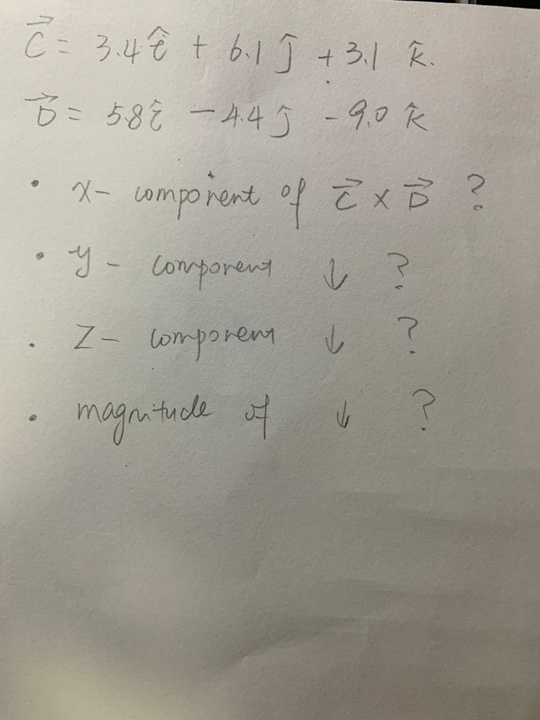 C⃗ = 3.4î + 6.1ĵ + 3.1 k̂.
D⃗ = 5.8î - 4.4ĵ - 9.0 k̂
• x- component of C⃗ × D⃗ ?
• y- component ↓ ?
• Z- component ↓ ?
• magnitude of ↓ ?